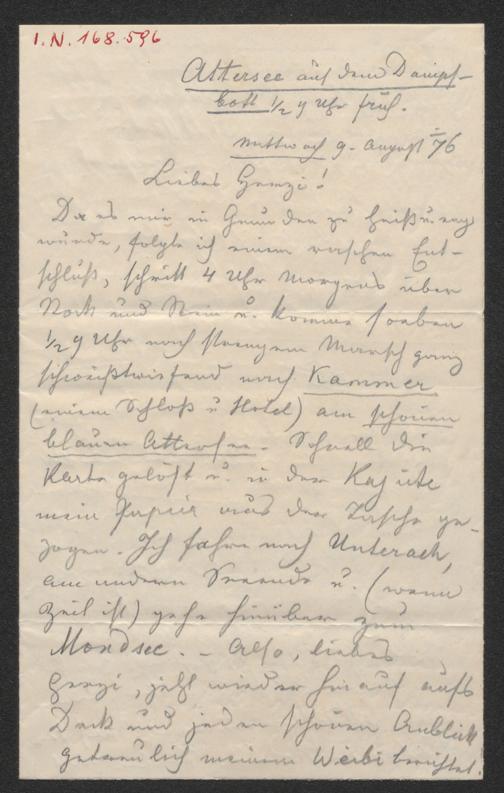 I.N. 168.596
Attersee auf dem Dampf-
boot ½ 9 Uhr früh.
Mittwoch 9. August 76
Liebes Herzi!
Da es mir in Gmunden zu heiß u. eng
wurde, folgte ich einem raschen Ent-
schluß, schritt 4 Uhr Morgens über
Stock und Stein u. komme soeben
½ 9 Uhr nach strengem Marsch ganz
schweißtriefend nach Kammer
(einem Schloß u Hotel) am schönen
blauen Attersee. Schnell die
Karte gelöst u. in der Kajüte
mein Papier aus der Tasche ge-
zogen. Ich fahre nach Unterach,
am andern Seeende u. (wenn
Zeit ist) gehe hinüber zum
Mondsee. – Also, liebes
Herzi, jetzt wieder hinauf aufs
Deck und jeden schönen Anblick
getreulich meinem Weibi berichtet.